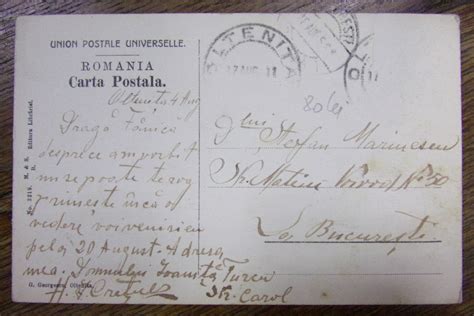 UNION POSTALE UNIVERSELLE.
ROMANIA
Carta Postala.
OLTENITA
17 AUG 11
80 lei
Oltenita 4 Aug
Dragă Fănică
despre ce am vorbit
nu se poate te rog
trimeste încă o
vedere voi veni și eu
pela 20 August. Adresa
mea. Domnului Ioanită Turcu
Str. Carol
D-lui
Stefan Marinescu
Str. Matei Voevod No 50
București
No. 2215. M. & S. B. Editura Librăriei
G. Georgescu, Oltenita